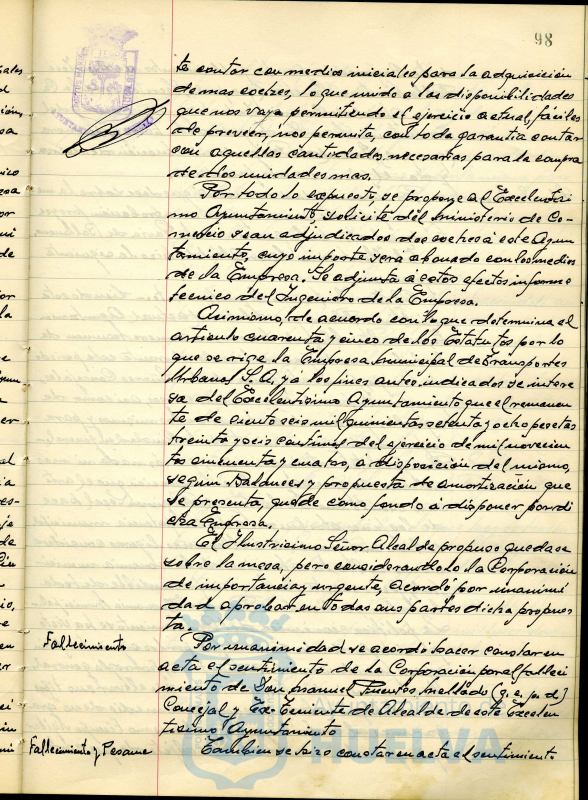 98
te contar con medios iniciales para la adquisición
de mas coches, lo que unido a las disponibilidades
que nos vaya permitiendo el ejercicio actual, fáciles
de preveer, nos permita, con toda garantia contar
con aquellas cantidades necesarias para la compra
de dos unidades mas.
Por todo lo expuesto, se propone al Excelentisi
mo Ayuntamiento, solicite del Ministerio de Co-
mercio sean adjudicados dos coches á este Ayun
tamiento, cuyo importe será abonado con los medios
de la Empresa. Se adjunta á estos efectos informe
tecnico del Ingeniero de la Empresa.
Asimismo, de acuerdo con lo que determina el
artículo cuarenta y cinco de los Estatutos por lo
que se rige la Empresa Municipal de Transportes
Urbanos S.A. y á los fines antes indicados se intere
sa del Excelentisimo Ayuntamiento que el remanen
te de ciento seis mil quinientas setenta y ocho pesetas
treinta y seis centimos del ejercicio de mil novecien
tos cincuenta y cuatro, á disposición del mismo,
segun Balances y propuesta de amortización que
se presenta, quede como fondo á disponer por di
cha Empresa.
El Ilustrisimo Señor Alcalde propuso quedase
sobre la mesa, pero considerandolo la Corporación
de importancia y urgente, acordó por unanimi
dad aprobar en todas sus partes dicha propues
ta.
Fallecimiento
Por unanimidad se acordó hacer constar en
acta el sentimiento de la Corporación por el falleci
miento de Don Manuel Fuentes Mellado (q.e.p.d.)
Concejal y Ex-Teniente de Alcalde de este Excelen
tisimo Ayuntamiento
Fallecimiento y Pesame
Tambien se hizo constar en acta el sentimiento
HUELVA